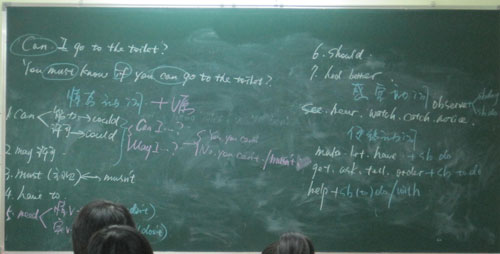 Can I go to the toilet?
You must know if you can go to the toilet?
情态动词 + V原
1. can 能力→could
许可→could
Can I...?
May I...?
Yes, you can
No, you can't / mustn't
2. may 许可
3. must (主观) ↔ mustn't
4. have to
5. need
6. should
7. had better
感官动词 observe
see. hear. watch. catch. notice.
使役动词
make. let. have. + sb do
get. ask. tell. order + sb to do
help + sb (to) do / with